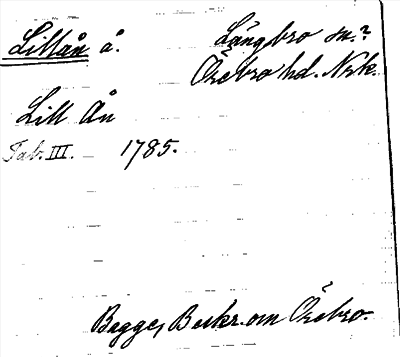 Lillån å. Längbro sn.?
Örebro hd. Nrk.
Lill Ån
Tab. III. 1785.
Bagge, Beskr. om Örebro.